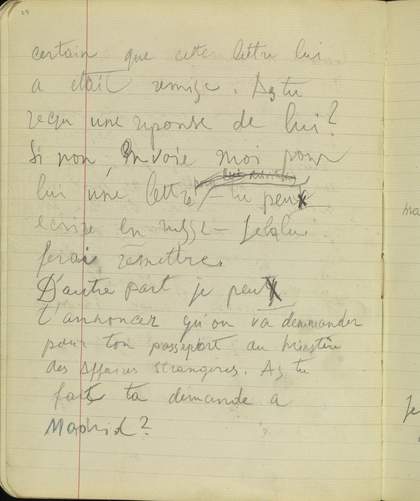 certain que cette lettre lui
a était remise. As tu
reçu une réponse de lui?
Si non, envoie moi pour
lui une lettre – tu peux
ecrire en russe – Je la lui
ferai remettre.
D'autre part je peux
t'annoncer qu'on va demmander
pour ton passeport au Ministère
des Affaires Strangeres. As tu
fait ta demande a
Madrid?
Je